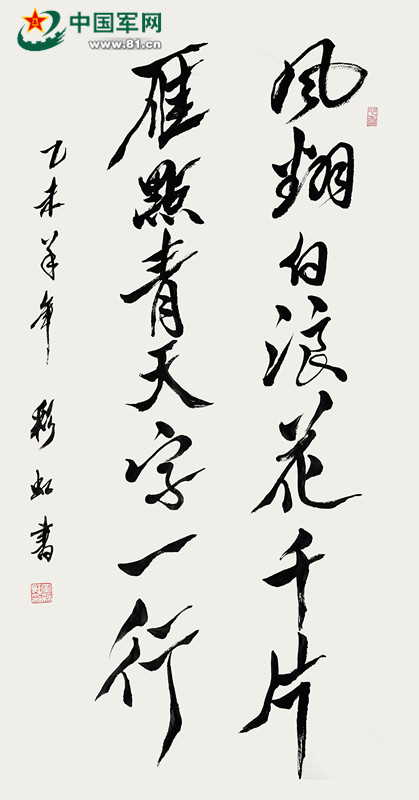 中国军网
www.81.cn
风翻白浪花千片
雁點青天字一行
乙未羊年 彩虹書